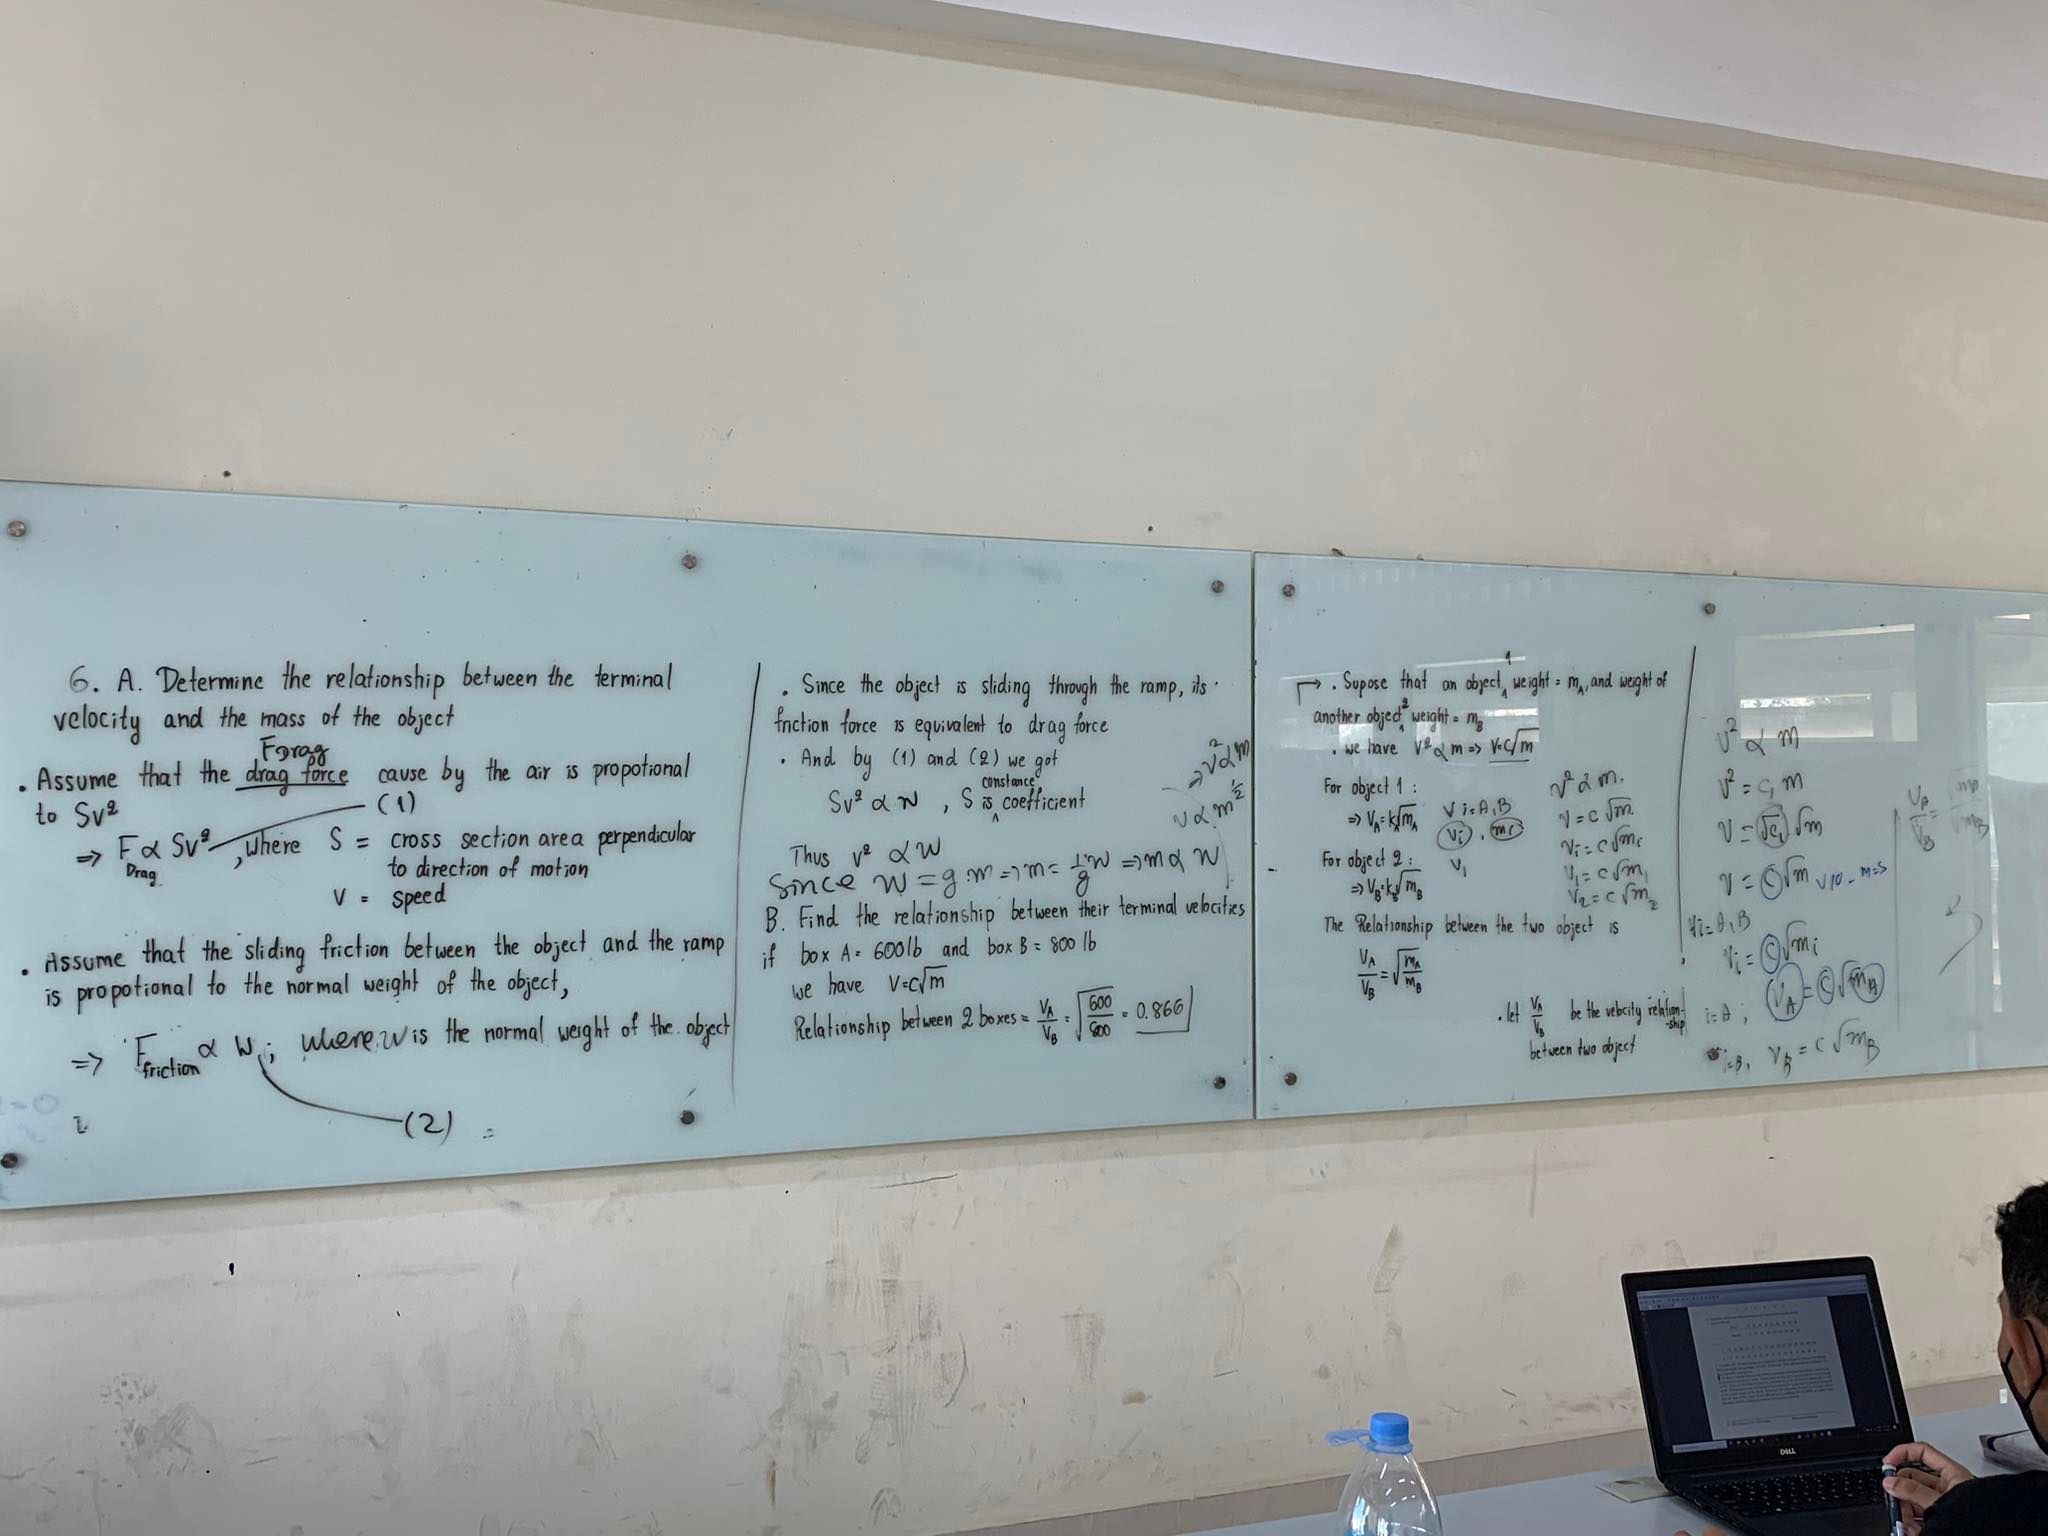 6. A. Determine the relationship between the terminal
velocity and the mass of the object
FDrag
. Assume that the drag force cause by the air is propotional
to Sv²
(1)
=> F ∝ Sv², where S = cross section area perpendicular
Drag
to direction of motion
V = speed
. Assume that the sliding friction between the object and the ramp
is propotional to the normal weight of the object,
=> Ffriction ∝ W ; where w is the normal weight of the object
(2)
. Since the object is sliding through the ramp, its
friction force is equivalent to drag force
. And by (1) and (2) we got
constance
Sv² ∝ w , S is coefficient
=> v² ∝ m
v ∝ m^½
Thus v² ∝ W
Since W = g m => m = 1/g w => m ∝ W
B. Find the relationship between their terminal velocities
if box A = 600 lb and box B = 800 lb
we have V = C√m
Relationship between 2 boxes = VA/VB = √(600/800) = 0.866
. Supose that an object 1 weight = mA, and weight of
another object 2 weight = mB
. we have V² ∝ m => V = C√m
For object 1 :
=> VA = kA√mA
For object 2 :
=> VB = kB√mB
The Relationship between the two object is
VA/VB = √(mA/mB)
. let VA/VB be the velocity relation-
-ship
between two object
∀ i = A, B
Vi , mi
V1
v² ∝ m.
v = c√m.
vi = c√mi
v1 = c√m1
v2 = c√m2
v² ∝ m
v² = c1 m
v = √c1 √m
v = C√m
∀i = A, B
vi = C√mi
i = A ; VA = C√mA
i = B, VB = C√mB
VA/VB = √mA/√mB
DELL